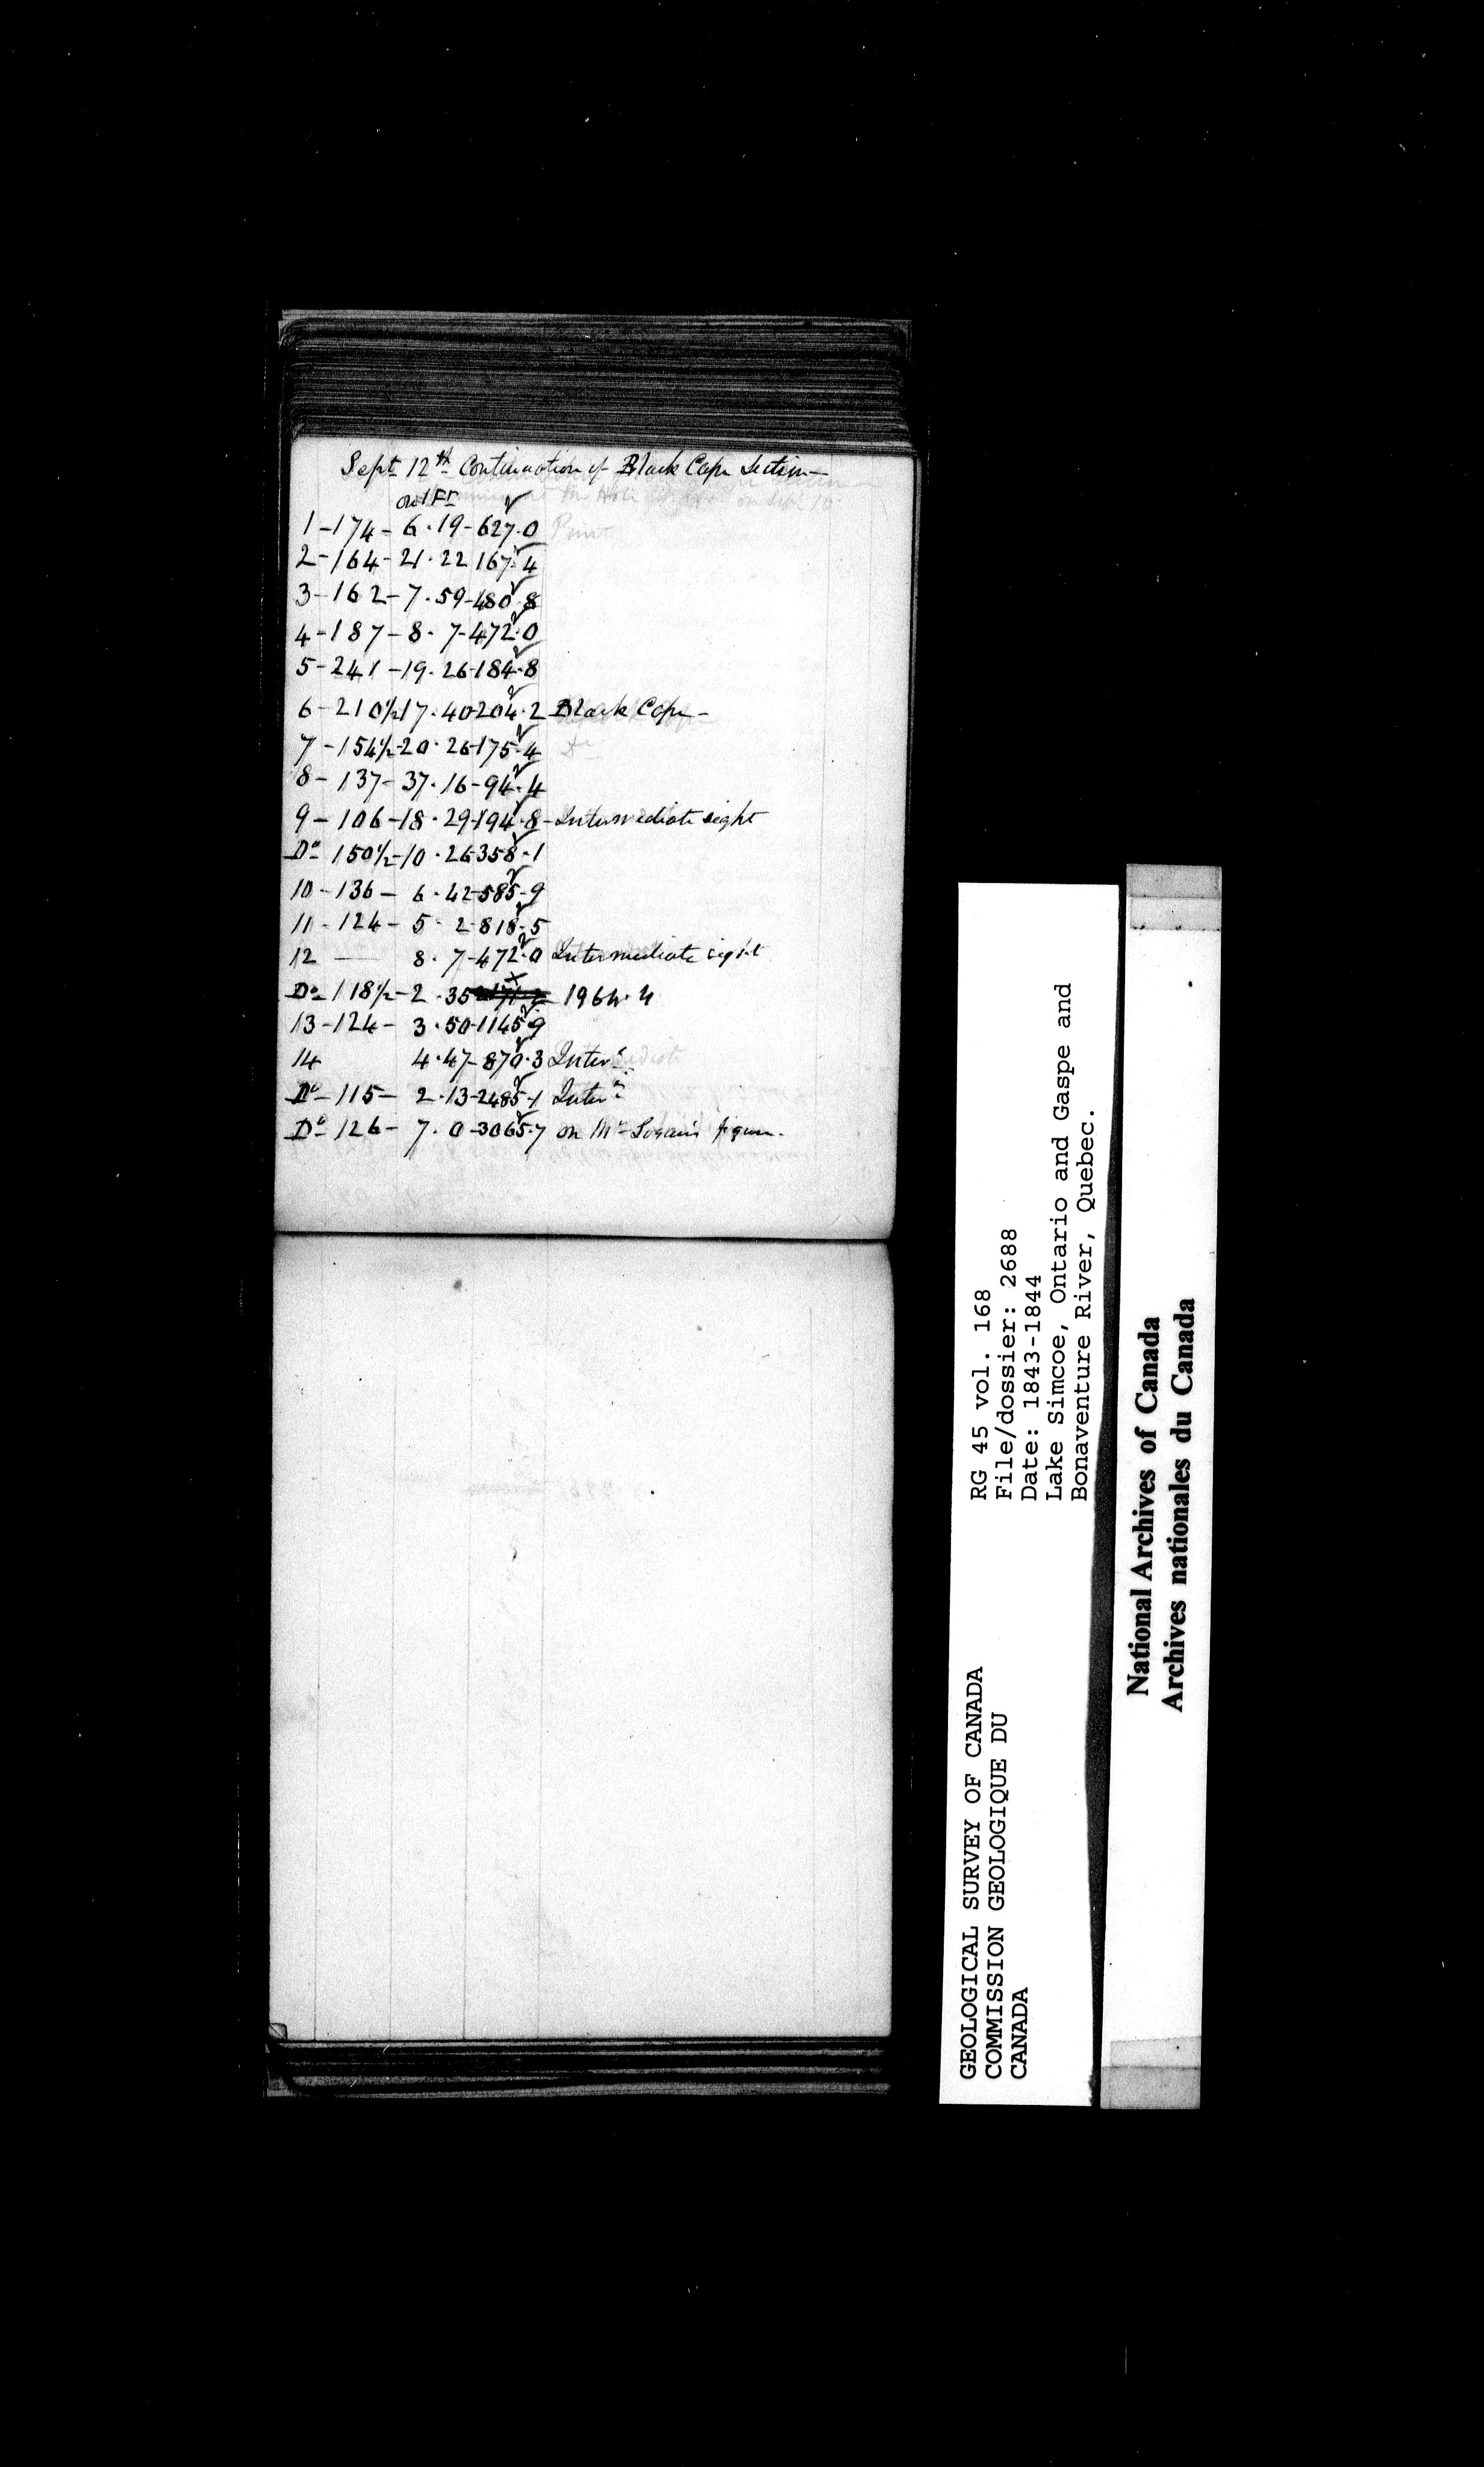 Sept 12th Continuation of Black Cape Section—
on 1 Ft
1-174-6.19-627.0 Point
2-164-21.22 167.4
3-162-7.59-480.8
4-187-8.7-472.0
5-241-19.26-184.8
6-210½-17.40-204.2 Black Cape-
7-154½-20.26-175.4 Do
8-137-37.16-94.4
9-106-18.29-194.8-Intermediate sight
Do 150½-10.26-358.1
10-136-6.42-585.9
11-124-5.2-818.5
12 — 8.7-472.0 Intermediate sight
Do-118½-2.35 1964.4
13-124-3.50-1145.9
14 4.47-870.3 Inter.
Do-115-2.13-2485.1 Inter.
Do-126-7.0-3065.7 on Mr Logan's figure.
RG 45 vol. 168
File/dossier: 2688
Date: 1843-1844
Lake Simcoe, Ontario and Gaspe and
Bonaventure River, Quebec.
GEOLOGICAL SURVEY OF CANADA
COMMISSION GEOLOGIQUE DU
CANADA
National Archives of Canada
Archives nationales du Canada